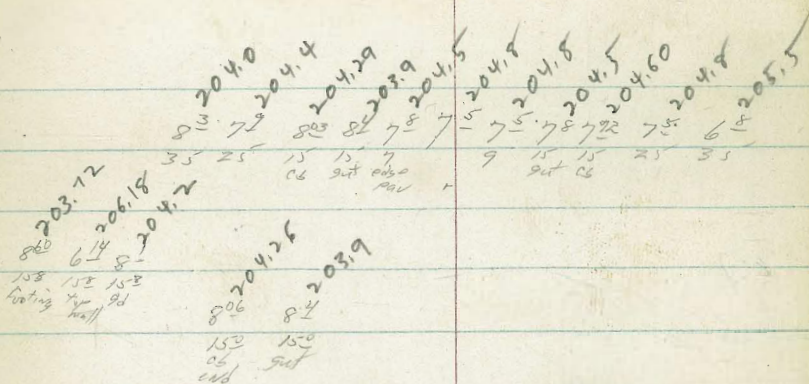 204.0 204.4 204.29 203.9 204.5 204.8 204.8 204.5 204.60 204.8 205.5
8 3 7 9 8 03 8 4 7 8 7 5 7 5 7 8 7 72 7 5 6 8
35 25 15 15 7 9 15 15 25 35
cb gut edge gut cb
pav
203.72 206.18 204.2
8 60 6 14 8 1
158 158 158
footing top gd
wall
204.26 203.9
8 06 8 4
150 150
cb gut
end